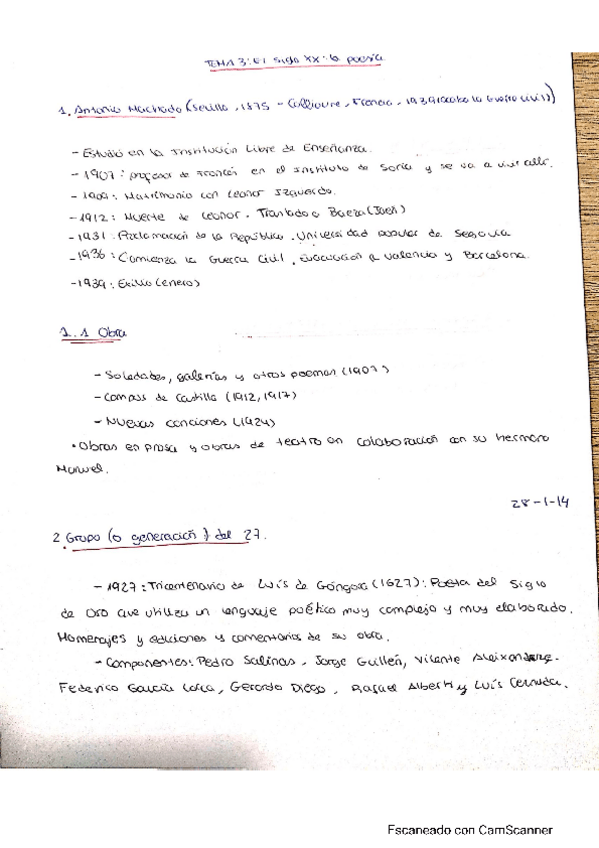 TEMA 3: El siglo XX: la poesía
1. Antonio Machado (Sevilla, 1875 - Collioure, Francia, 1939 (acaba la Guerra civil))
- Estudió en la Institución Libre de Enseñanza.
- 1907: profesor de francés en el Instituto de Soria y se va a vivir allí.
- 1909: Matrimonio con Leonor Izquierdo.
- 1912: Muerte de Leonor. Traslado a Baeza (Jaén)
- 1931: Proclamación de la República. Universidad popular de Segovia
- 1936: Comienza la Guerra Civil. Evacuación a Valencia y Barcelona.
- 1939: Exilio (enero)
1.1 Obra
- Soledades, galerías y otros poemas (1907)
- Campos de Castilla (1912, 1917)
- Nuevas canciones (1924)
• Obras en prosa y obras de teatro en colaboración con su hermano
Manuel.
28-1-14
2 Grupo (o generación) del 27.
- 1927: Tricentenario de Luís de Góngora (1627): Poeta del Siglo
de Oro que utiliza un lenguaje poético muy complejo y muy elaborado.
Homenajes y ediciones y comentarios de su obra.
- Componentes: Pedro Salinas, Jorge Guillén, Vicente Aleixandre.
Federico García Lorca, Gerardo Diego, Rafael Alberti y Luís Cernuda.
Escaneado con CamScanner